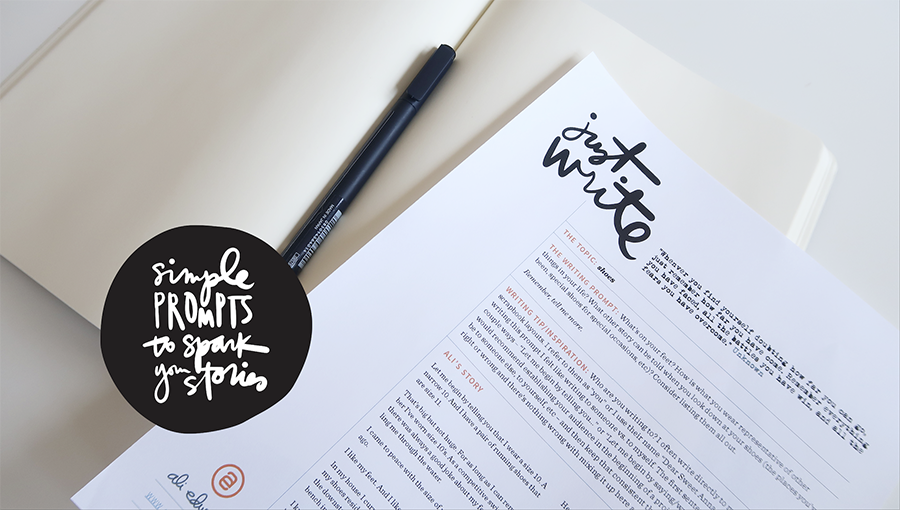 just
write
"Whenever you find yourself doubting how far you can
just remember how far you have come. Remember everything
you have faced, all the battles you have won, and all the
fears you have overcome."
Unknown
THE TOPIC: shoes
THE WRITING PROMPT: What's on your feet? How is what you wear representative of other
things in your life? What other story can be told when you look down at your shoes (the places you've
been, special shoes for special occasions, etc)? Consider listing them all out.
Remember, tell me more.
WRITING TIP/INSPIRATION: Who are you writing to? I often write directly to
scrapbook layouts. I refer to them as "you" or I use their name.
writing this prompt I felt like writing to someone vs. to myself. The first
couple ways - "Let me begin by telling you..." or "Dear Sweet
would recommend establishing your audience in the beginning by
be to someone else, to yourself, etc - and then keep that
right or wrong and there's nothing wrong with mixing it up here
ALI'S STORY
Let me begin by telling you that I wear a size 10. A
narrow 10. And I have a pair of running shoes that
are size 11.
That's big but not huge. For as long as I can
ber I've worn size 10's. As a competitive
there was always a good joke about my
ing me through the water.
I came to peace with the size
ago.
I like my feet. And I like
In my house I
my shoes
bench
simple
PROMPTS
to spark
your stories
@
ali edw